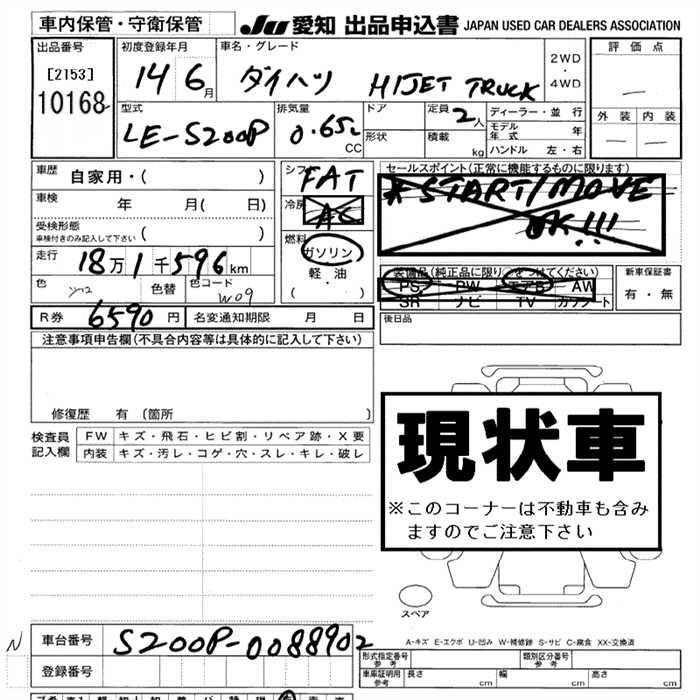 車内保管・守衛保管
JU 愛知 出品申込書 JAPAN USED CAR DEALERS ASSOCIATION
出品番号
[2153]
10168
初度登録年月
14 6月
車名・グレード
ダイハツ HIJET TRUCK
2WD
・
4WD
評価点
外装 内装
型式
LE-S200P
排気量
0.65L
CC
ドア
形状
定員 2人
積載 kg
ディーラー・並行
モデル年式 年
ハンドル 左・右
車歴 自家用・( )
車検 年 月( 日)
受検形態
車検付きのみ記入して下さい ( )
走行 18万1千596km
色 色替 色コード
W09
シフト
FAT
冷房
AC
燃料
ガソリン
軽・油
( ・ )
セールスポイント(正常に機能するものに限ります)
*START/MOVE
OK!!!
装備品(純正品に限り○をつけてください)
PS PW エアB AW
SR ナビ TV カワシート
新車保証書
有・無
R券 6590円 名変通知期限 月 日
後日品
注意事項申告欄(不具合内容等は具体的に記入して下さい)
修復歴 有 (箇所 )
検査員
記入欄
FW キズ・飛石・ヒビ割・リペア跡・X要
内装 キズ・汚レ・コゲ・穴・スレ・キレ・破レ
現状車
※このコーナーは不動車も含み
ますのでご注意下さい
スペア
A-キズ E-エクボ U-凹み W-補修跡 S-サビ C-腐食 XX-交換済
N 車台番号 S200P-0088902
登録番号
形式指定番号
参考
類別区分番号
参考
車庫証明用
参考
長さ cm 幅 cm 高さ cm